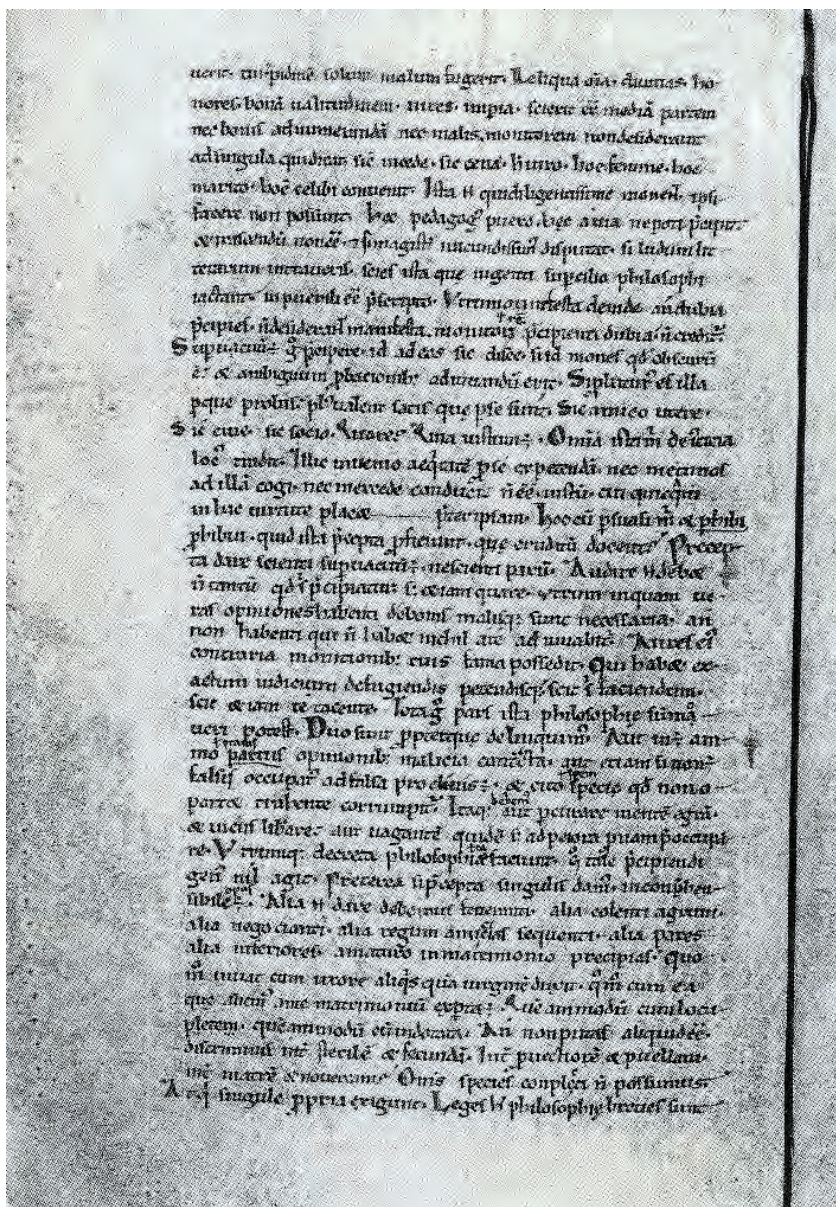 uerit. turpidinē solum malum fugerit. Reliqua oīa. diuitias. ho-
nores. bonā ualitudinem. uires. impia. scierit eē mediā partem
nec bonis adnumerandā nec malis. monitorem non desiderauit
ad singula qui dicat. sic incede. sic cena. h uiro. hoc femine. hoc
marito. hoc celibi conuenit. Ista .n. qui diligentissime monent. ipsi
facere non possunt. hęc pedagog puero. hęc auia nepoti pcipit.
si ludum lit-
terarium intraueris. scies ista que ingenti supcilio philosophi
iactant. in puerili eē pscripto. Vtrum manifesta deinde an dubia
pcipies. n desiderant manifesta monitorē. pcipienti dubia. n creditur.
Supuacuū ē g pcipere. id adeo sic disce. si id mones qd obscurū
ē. & ambiguum pbationib; adiuuandū erit. Si pbaturus es illa
p que probas. pl ualent satisque p se sunt. Sic amico utere.
Sic ciue. sic socio. Quare? Quia iustum ē. Omīa ista m de iusticia
loc tradit. Illic inuenio aequitatē p se expetendā. nec metu nos
ad illā cogi. nec mercede conduci. n eē iustū cui quicq m
in hac uirtute placet pter ipsam. hoc cū psuasi m & phibi
phibui. quid ista pcepta pficiunt. que eruditū docent? Precep-
ta dare scienti supuacuū ē. nescienti parū. Audire .n. debet
n tantū qd s pcipiatur s; etiam quare. vtrum inquam ue-
ras opiniones habenti de bonis malisq; sunt necessaria. an
non habenti. qui n habet nichil a te adiuuabit. Aures ei
contraria monitionib; tuis fama possedit. Qui habet ex-
actum iudicium de fugiendis petendisq; scit s faciendum.
scit etiam te tacente. Tota g pars ista philosophie sumo-
ueri potest. Duo sunt ppter que delinquim. Aut inē ani-
mo prauis opinionib; malicia contracta. aut etiam si non ē
falsis occupat. ad falsa procliuis ē. & cito specie quo non o-
portet trahente corrumpit. Itaq; debem aut pcurare mentē egrā.
& uiciis libare. aut uacantē quidē s; ad peiora pnam pocupa-
re. Vtrumq; decreta philosophie faciunt. g tale pcipiendi
gen nil agit. Preterea si pcepta singulis dam. inconphen-
sibile opus ē. Alia .n. dare debemus feneranti. alia colenti agrum.
alia negocianti. alia regum amicitias sequenti. alia pares.
alia inferiores. amaturo. in matrimonio precipias. quo-
m uiuat cum uxore aliqs quā uirginē duxit. qm cum ea
que alicui ante matrimonium expta ē. Quē ammodū cum locu-
pletem. quē ammodū cū indotata. An non putas aliquid eē
discriminis int sterilē & fecundā. Int puectiorē & puellam.
int matrē & nouercam? Omīs species conplecti n possumus.
Atq singule ppria exigunt. Leges h philosophie breues sunt